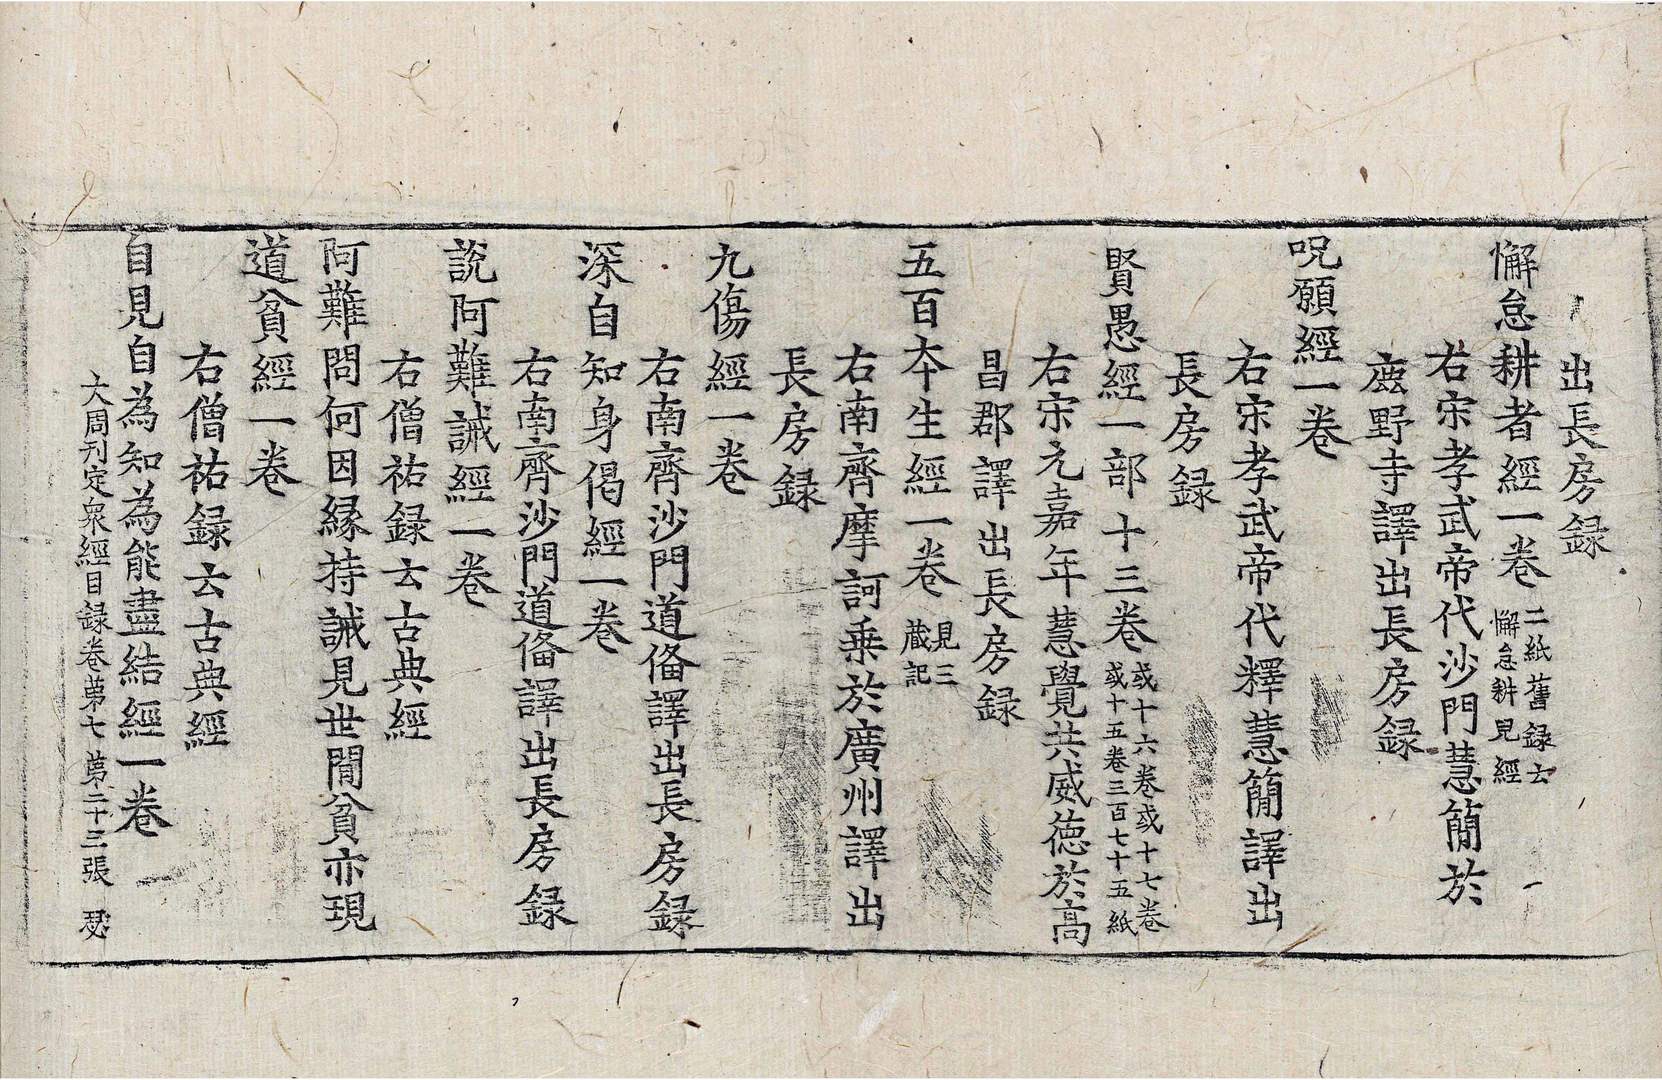 出長房録
懈怠耕者經一卷 二紙舊録云 懈怠耕見經
右宋孝武帝代沙門慧簡於
鹿野寺譯出長房録
呪願經一卷
右宋孝武帝代釋慧簡譯出
長房録
賢愚經一部十三卷 或十六卷或十七卷 或十五卷三百七十五紙
右宋元嘉年慧覺共威徳於高
昌郡譯出長房録
五百本生經一卷 見三 蔵記
右南齊摩訶乗於廣州譯出
長房録
九傷經一卷
右南齊沙門道俻譯出長房録
深自知身偈經一卷
右南齊沙門道俻譯出長房録
說阿難誡經一卷
右僧祐録云古典經
阿難問何因縁持誡見世間貧亦現
道貧經一卷
右僧祐録云古典經
自見自為知為能盡結經一卷
大周刊定衆經目録卷第七 第二十三張 瑟